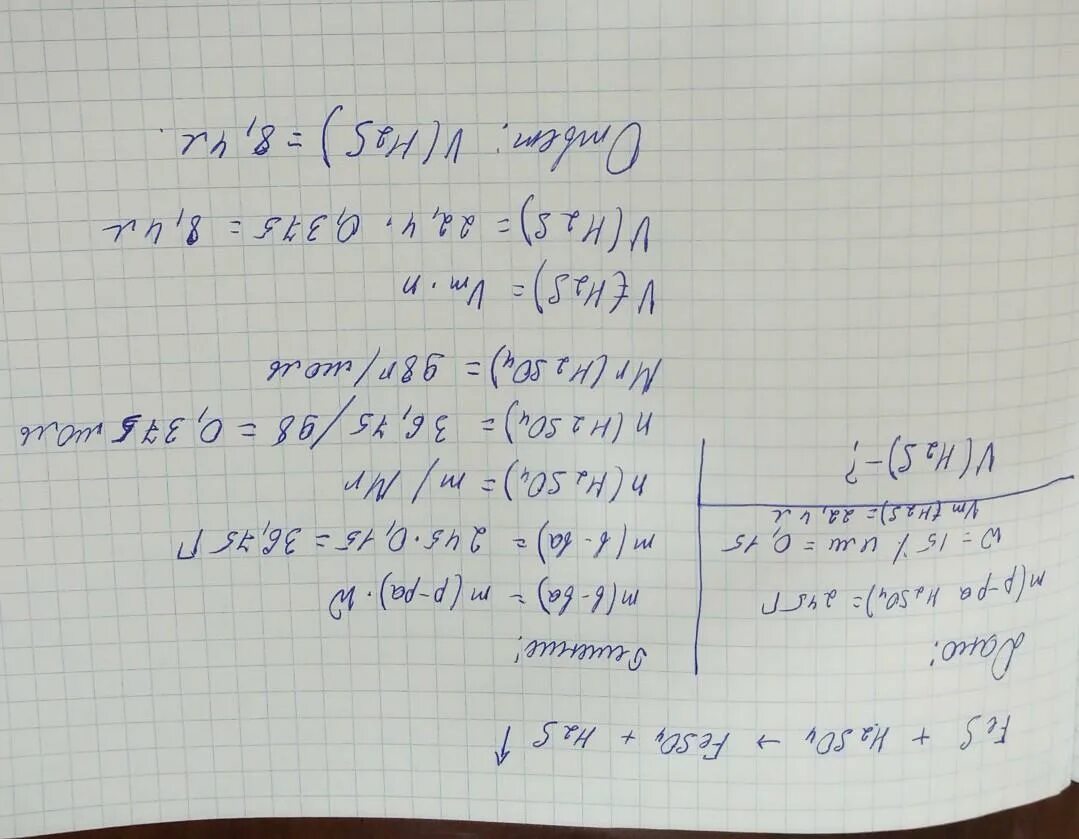 FeS + H2SO4 → FeSO4 + H2S ↑
Дано:
m(р-ра H2SO4) = 245 г
ω = 15 % или = 0,15
Vm(H2S) = 22,4 л
V(H2S) - ?
Решение:
m(в-ва) = m(р-ра) · ω
m(в-ва) = 245 · 0,15 = 36,75 г
n(H2SO4) = m / Mr
n(H2SO4) = 36,75 / 98 = 0,375 моль
Mr(H2SO4) = 98 г/моль
V(H2S) = Vm · n
V(H2S) = 22,4 · 0,375 = 8,4 л
Ответ: V(H2S) = 8,4 л.